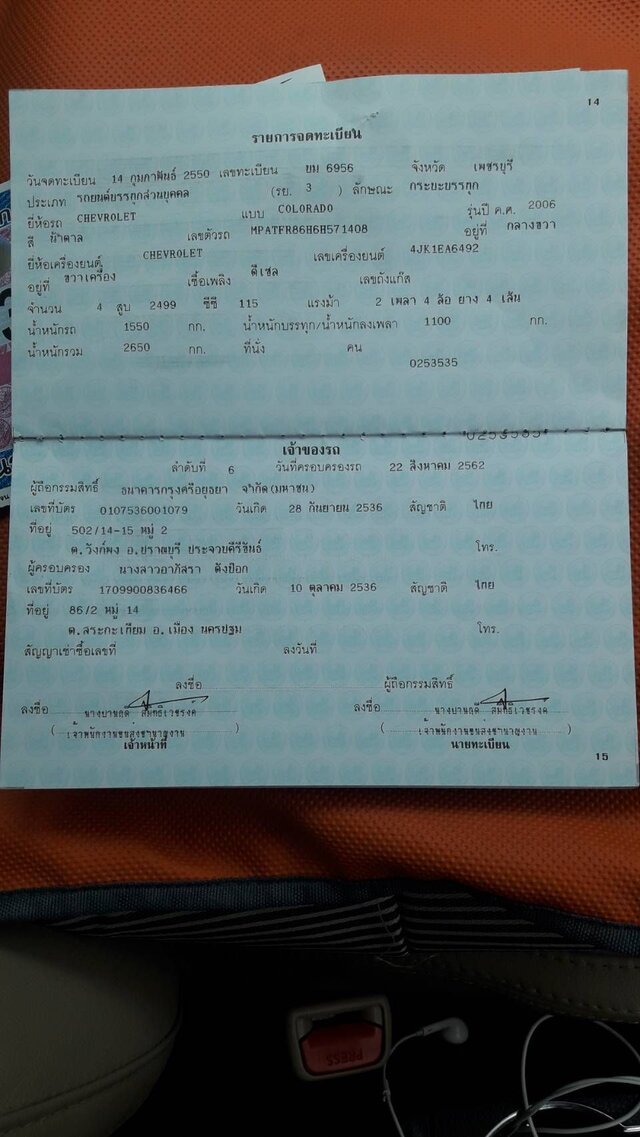 14
รายการจดทะเบียน
วันจดทะเบียน 14 กุมภาพันธ์ 2550 เลขทะเบียน ยม 6956 จังหวัด เพชรบุรี
ประเภท รถยนต์บรรทุกส่วนบุคคล (รย. 3 ) ลักษณะ กระบะบรรทุก
ยี่ห้อรถ CHEVROLET แบบ COLORADO รุ่นปี ค.ศ. 2006
สี น้ำตาล เลขตัวรถ MPATFR86H6H571408 อยู่ที่ กลางขวา
ยี่ห้อเครื่องยนต์ CHEVROLET เลขเครื่องยนต์ 4JK1EA6492
อยู่ที่ ขวาเครื่อง เชื้อเพลิง ดีเซล เลขถังแก๊ส
จำนวน 4 สูบ 2499 ซีซี 115 แรงม้า 2 เพลา 4 ล้อ ยาง 4 เส้น
น้ำหนักรถ 1550 กก. น้ำหนักบรรทุก/น้ำหนักลงเพลา 1100 กก.
น้ำหนักรวม 2650 กก. ที่นั่ง คน
0253535
0253535
เจ้าของรถ
ลำดับที่ 6 วันที่ครอบครองรถ 22 สิงหาคม 2562
ผู้ถือกรรมสิทธิ์ ธนาคารกรุงศรีอยุธยา จำกัด(มหาชน)
เลขที่บัตร 0107536001079 วันเกิด 28 กันยายน 2536 สัญชาติ ไทย
ที่อยู่ 502/14-15 หมู่ 2
ต.วังก์พง อ.ปราณบุรี ประจวบคีรีขันธ์ โทร.
ผู้ครอบครอง นางสาวอาภัสรา ตังป๊อก
เลขที่บัตร 1709900836466 วันเกิด 10 ตุลาคม 2536 สัญชาติ ไทย
ที่อยู่ 86/2 หมู่ 14
ต.สระกะเทียม อ.เมือง นครปฐม โทร.
สัญญาเช่าซื้อเลขที่ ลงวันที่
ลงชื่อ ผู้ถือกรรมสิทธิ์
ลงชื่อ ลงชื่อ
( เจ้าพนักงานขนส่งชำนาญงาน ) ( เจ้าพนักงานขนส่งชำนาญงาน )
เจ้าหน้าที่ นายทะเบียน
15
PRESS